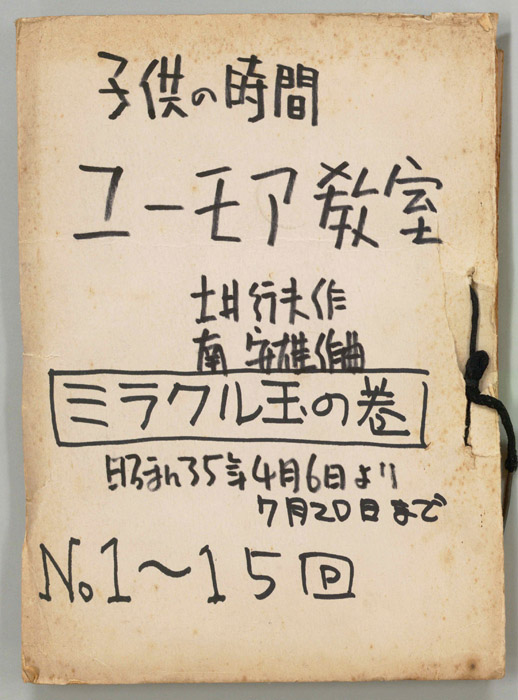 子供の時間
ユーモア教室
土井行夫作
南 安雄作曲
ミラクル玉の巻
昭和35年4月6日より
7月20日まで
No.1〜15回